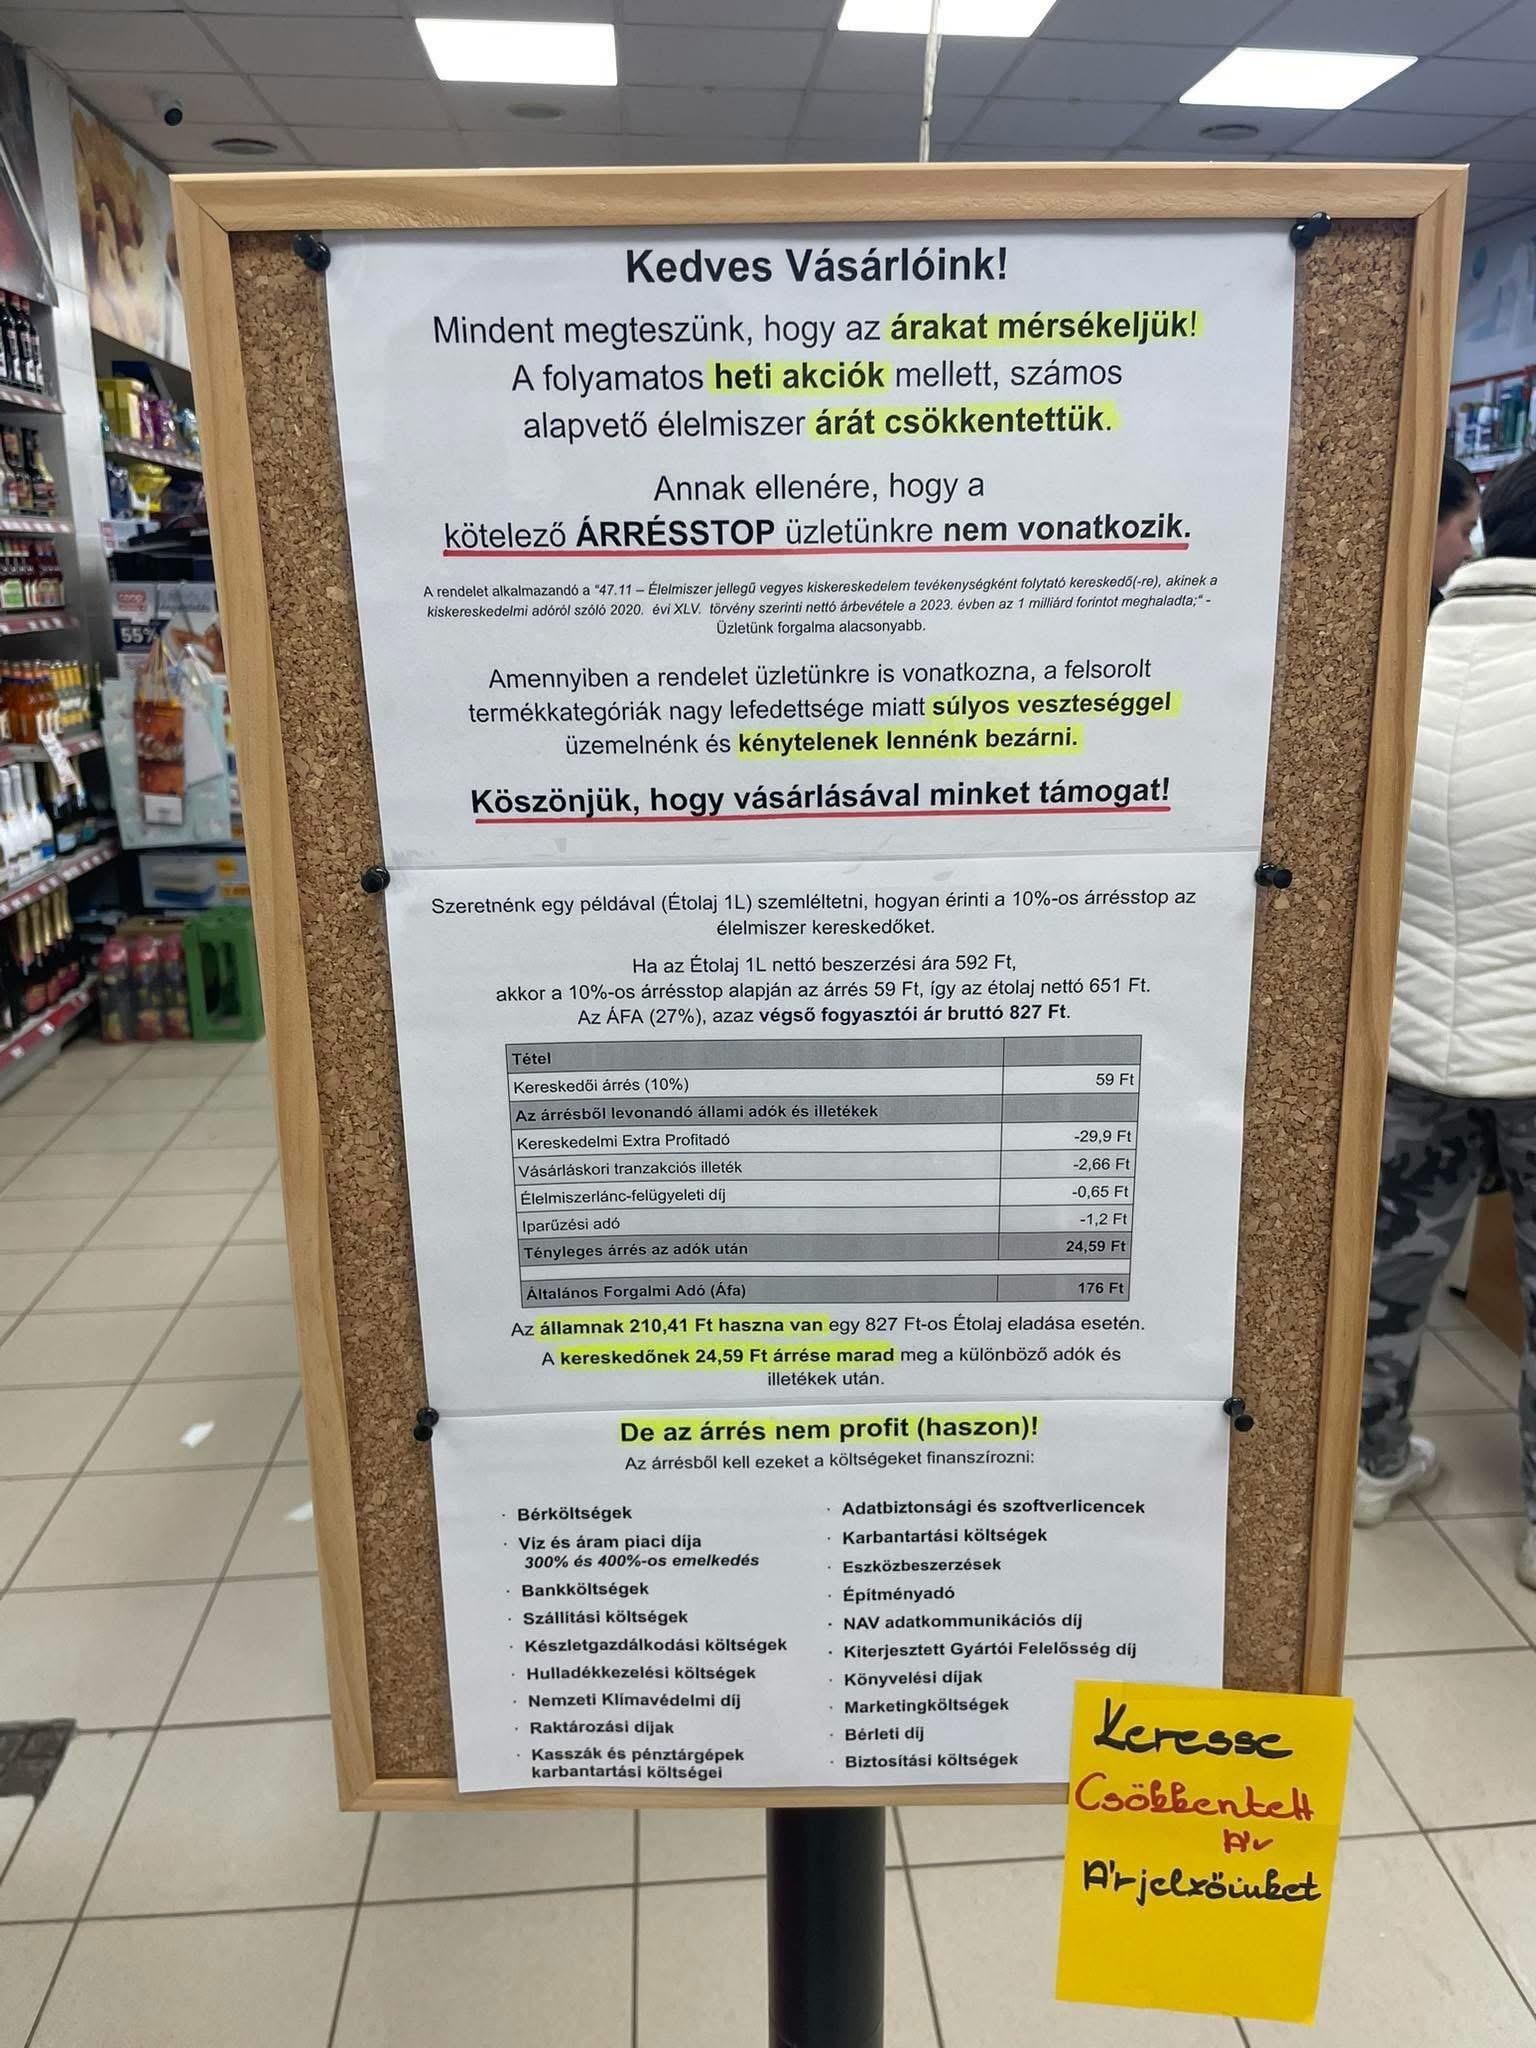 Kedves Vásárlóink!
Mindent megteszünk, hogy az árakat mérsékeljük!
A folyamatos heti akciók mellett, számos
alapvető élelmiszer árát csökkentettük.
Annak ellenére, hogy a
kötelező ÁRRÉSSTOP üzletünkre nem vonatkozik.
A rendelet alkalmazandó a "47.11 – Élelmiszer jellegű vegyes kiskereskedelem tevékenységként folytató kereskedő(-re), akinek a
kiskereskedelmi adóról szóló 2020. évi XLV. törvény szerinti nettó árbevétele a 2023. évben az 1 milliárd forintot meghaladta;" -
Üzletünk forgalma alacsonyabb.
Amennyiben a rendelet üzletünkre is vonatkozna, a felsorolt
termékkategóriák nagy lefedettsége miatt súlyos veszteséggel
üzemelnénk és kénytelenek lennénk bezárni.
Köszönjük, hogy vásárlásával minket támogat!
Szeretnénk egy példával (Étolaj 1L) szemléltetni, hogyan érinti a 10%-os árrésstop az
élelmiszer kereskedőket.
Ha az Étolaj 1L nettó beszerzési ára 592 Ft,
akkor a 10%-os árrésstop alapján az árrés 59 Ft, így az étolaj nettó 651 Ft.
Az ÁFA (27%), azaz végső fogyasztói ár bruttó 827 Ft.
Tétel
Kereskedői árrés (10%) 59 Ft
Az árrésből levonandó állami adók és illetékek
Kereskedelmi Extra Profitadó -29,9 Ft
Vásárláskori tranzakciós illeték -2,66 Ft
Élelmiszerlánc-felügyeleti díj -0,65 Ft
Iparűzési adó -1,2 Ft
Tényleges árrés az adók után 24,59 Ft
Általános Forgalmi Adó (Áfa) 176 Ft
Az államnak 210,41 Ft haszna van egy 827 Ft-os Étolaj eladása esetén.
A kereskedőnek 24,59 Ft árrése marad meg a különböző adók és
illetékek után.
De az árrés nem profit (haszon)!
Az árrésből kell ezeket a költségeket finanszírozni:
· Bérköltségek
· Viz és áram piaci díja
300% és 400%-os emelkedés
· Bankköltségek
· Szállítási költségek
· Készletgazdálkodási költségek
· Hulladékkezelési költségek
· Nemzeti Klímavédelmi díj
· Raktározási díjak
· Kasszák és pénztárgépek
karbantartási költségei
· Adatbiztonsági és szoftverlicencek
· Karbantartási költségek
· Eszközbeszerzések
· Építményadó
· NAV adatkommunikációs díj
· Kiterjesztett Gyártói Felelősség díj
· Könyvelési díjak
· Marketingköltségek
· Bérleti díj
· Biztosítási költségek
Keresse
Csökkentett
Ár
Árjelzőinket
coop
55%